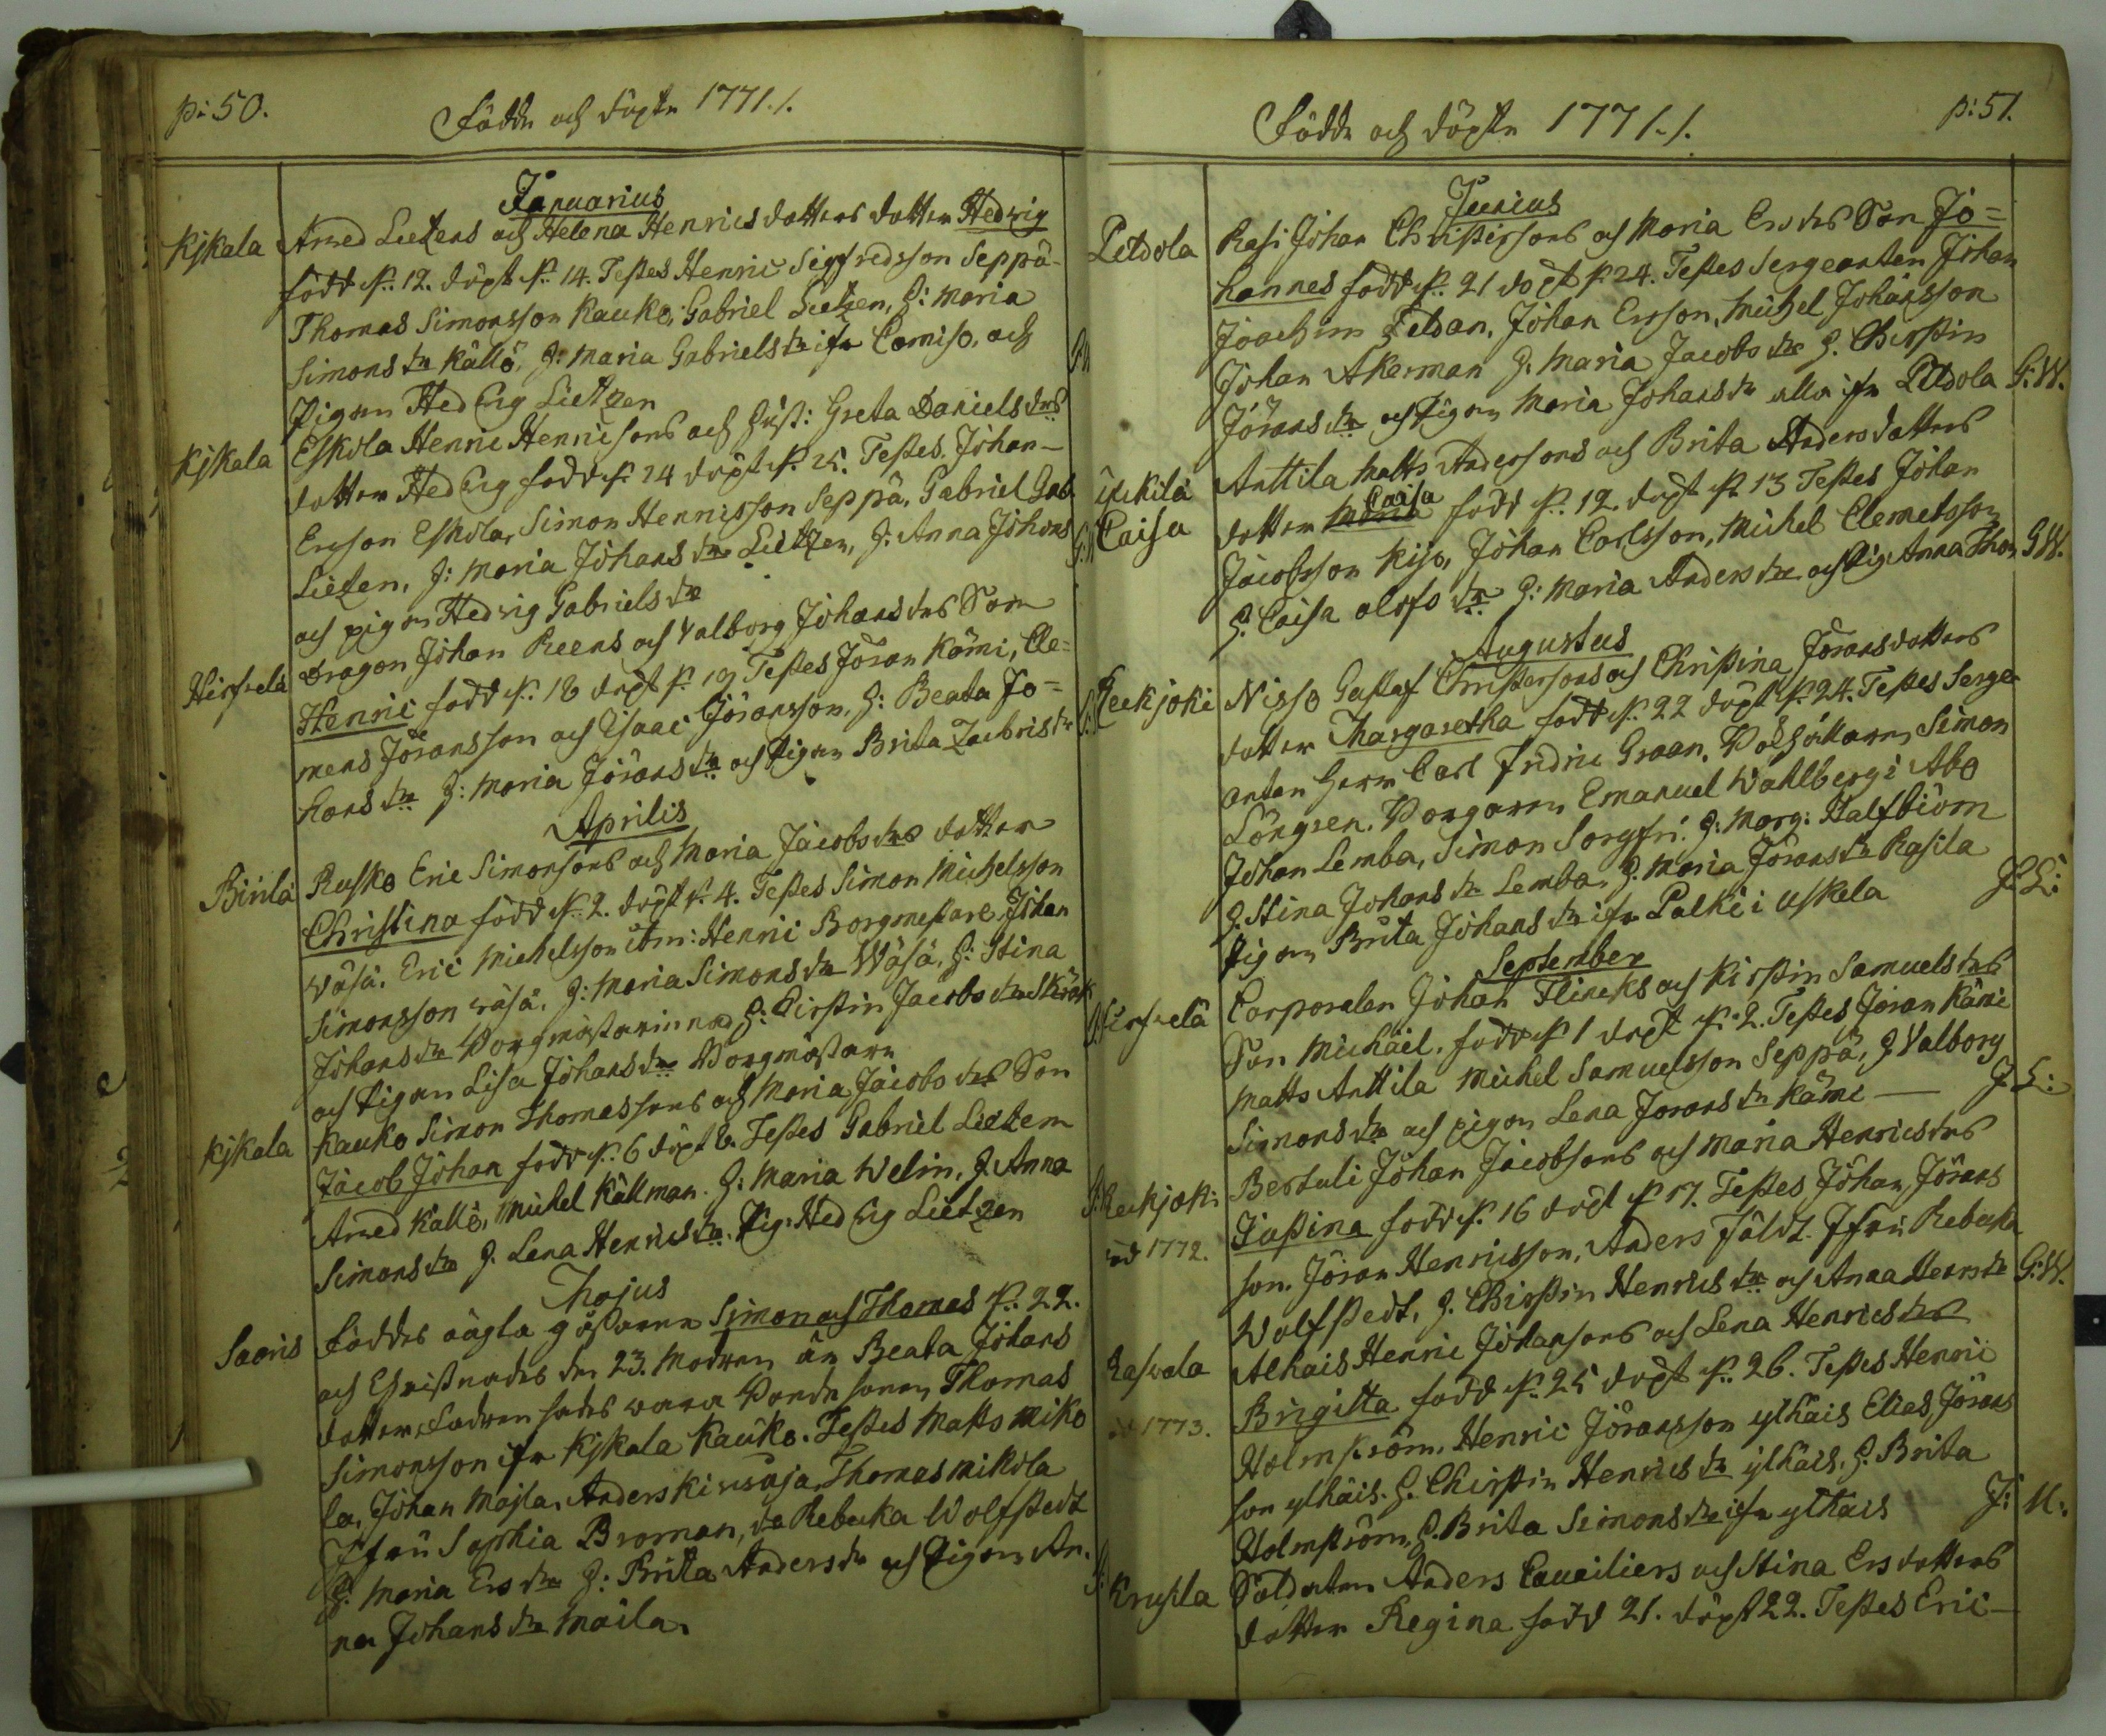 p: 50.
Födde och döpte 1771./.
Januarius
Kjkala Arved Lietzens och Helena Henricsdotters dotter Hedvig
född d. 12. döpt d. 14. Testes Henric Sigfredsson Seppä
Thomas Simonsson Kauko, Gabriel Lietzen, H: Maria
Simons dr Källö, H: Maria Gabriels dr ifr Comiso, och
Pigan Hedvig Lietzen
Kjkala Eskola Henric Henricsons och Hust: Greta Daniels drs
dotter Hedvig född d. 24 döpt d. 25. Testes Johan
Ersson Eskola, Simon Henricsson Seppä, Gabriel Gab
Lietzen, H: Maria Johans dr Lietzen, H: Anna Johans
och pigan Hedvig Gabriels dr
Hirfvelä Dragon Johan Reens och Valborg Johans drs Son
Henric född d. 18 döpt d. 19 Testes Jöran Kämi, Cle=
mens Jöransson och Isaac Jöransson, H: Beata Jo=
hans dr H: Maria Jörans dr och Pigan Brita Zachris dr
Aprilis
Pirilä Rusko Eric Simonsons och Maria Jacobs drs dotter
Christina född d. 2. döpt d. 4. Testes Simon Michelsson
Väsä, Eric Michelsson itm: Henric Borgmestare Johan
Simonsson väsä, H: Maria Simons dr Wäsä, H: Stina
Johans dr Borgmästarinna H: Cirstin Jacobs dr
och Pigan Lisa Johans dr Borgmästare
Kjkala Kauko Simon Thomassons och Maria Jacobs drs Son
Jacob Johan född d. 6 döpt 8. Testes Gabriel Lietzen
Arved Källö, Michel Källman. H: Maria Welin, H. Anna
Simons dr H. Lena Henrics dr. Pig. Hedvig Lietzen
Majus
Saaris Föddes oägta gåssarne Simon och Thomas d. 22.
och Christnades den 23. Modren är Beata Johans
dotter, Fadren sades vara Bonde sonen Thomas
Simonsson ifr Kjkala Kauko. Testes Matts Miko
la, Johan Majla, Anders Thomas Mikola
Jfru Sophia Broman, do Rebecka Wolfstedt
H: Maria Ers dr H: Brita Anders dr och Pigan An=
na Johans dr Maila.
Födde och döpte 1771./.
p: 51.
Junius
Peldola Rasi Johan Christersons och Maria Ers drs Son Jo=
hannes född d. 21 döpt d. 24. Testes Sergeanten Johan
Joachim Feldan, Johan Ersson, Michel Johansson
Johan Åkerman H. Maria Jacobs dr H. Chirstin
Jörans dr och Pigan Maria Johans dr alla ifr Peldola G:W.
Antila Matts Andersons och Brita Andersdotters
Caisa dotter Maria Caisa född d. 12. döpt d. 13 Testes Johan
Jacobsson Kiso, Johan Carlsson, Michel Clemetsson
H. Caisa Olofs dr H: Maria Anders dr och Pig. Anna Thom G:W.
Augustus
Reekjoki Nisso Gustaf Christersons och Christina Jöransdotters
dotter Margaretha född d. 22 döpt d. 24. Testes Serge
anten Herr Carl Fridric Graan, Bokhållaren Simon
Löngren, Borgaren Emanuel Wahlberg i Åbo
Johan Lemba, Simon Sorgfri. H: Marg: Halfbiörn
H. Stina Johans dr Lemba, H. Maria Jörans dr Rasila
Pigan Brita Johans dr ifr Palki i Uskela J: L:
September
Hirfvelä Corporalen Johan Flincks och Kirstin Samuels drs
Son Michäel, född d. 1 döpt d. 2. Testes Jöran Kämi
Matts Antila Michel Samuelsson Seppä, H. Valborg
Simons dr och pigan Lena Jorans dr Kämi — J: L:
Reekjoki Bertuli Johan Jacobsons och Maria Henrics drs
Justina född d. 16 döpt d. 17. Testes Johan Jörans
1772. son. Jöran Henricsson, Anders Fäldt. Jfru Rebecka
Wolfstedt, H. Chirstin Henrics dr och Anna Henrs dr G:W.
Rasvala Alhais Henric Johansons och Lena Henrics drs
Brigitta född d. 25 döpt d. 26. Testes Henric
1773. Holmström, Henric Jöransson ylhäis Elias Jörans
son ylhäis. H. Chirstin Henrics dr ylhäis, H. Brita
Holmström, H. Brita Simons dr ifr ylhäis J: U:
Krusila Soldaten Anders Cavailiers och Stina Ersdotters
dotter Regina född 21. döpt 22. Testes Eric